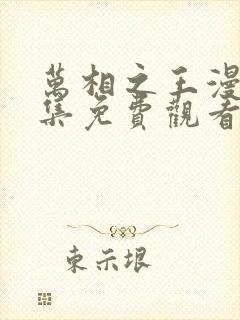 萬相之王漫
集免費觀看
東示垠